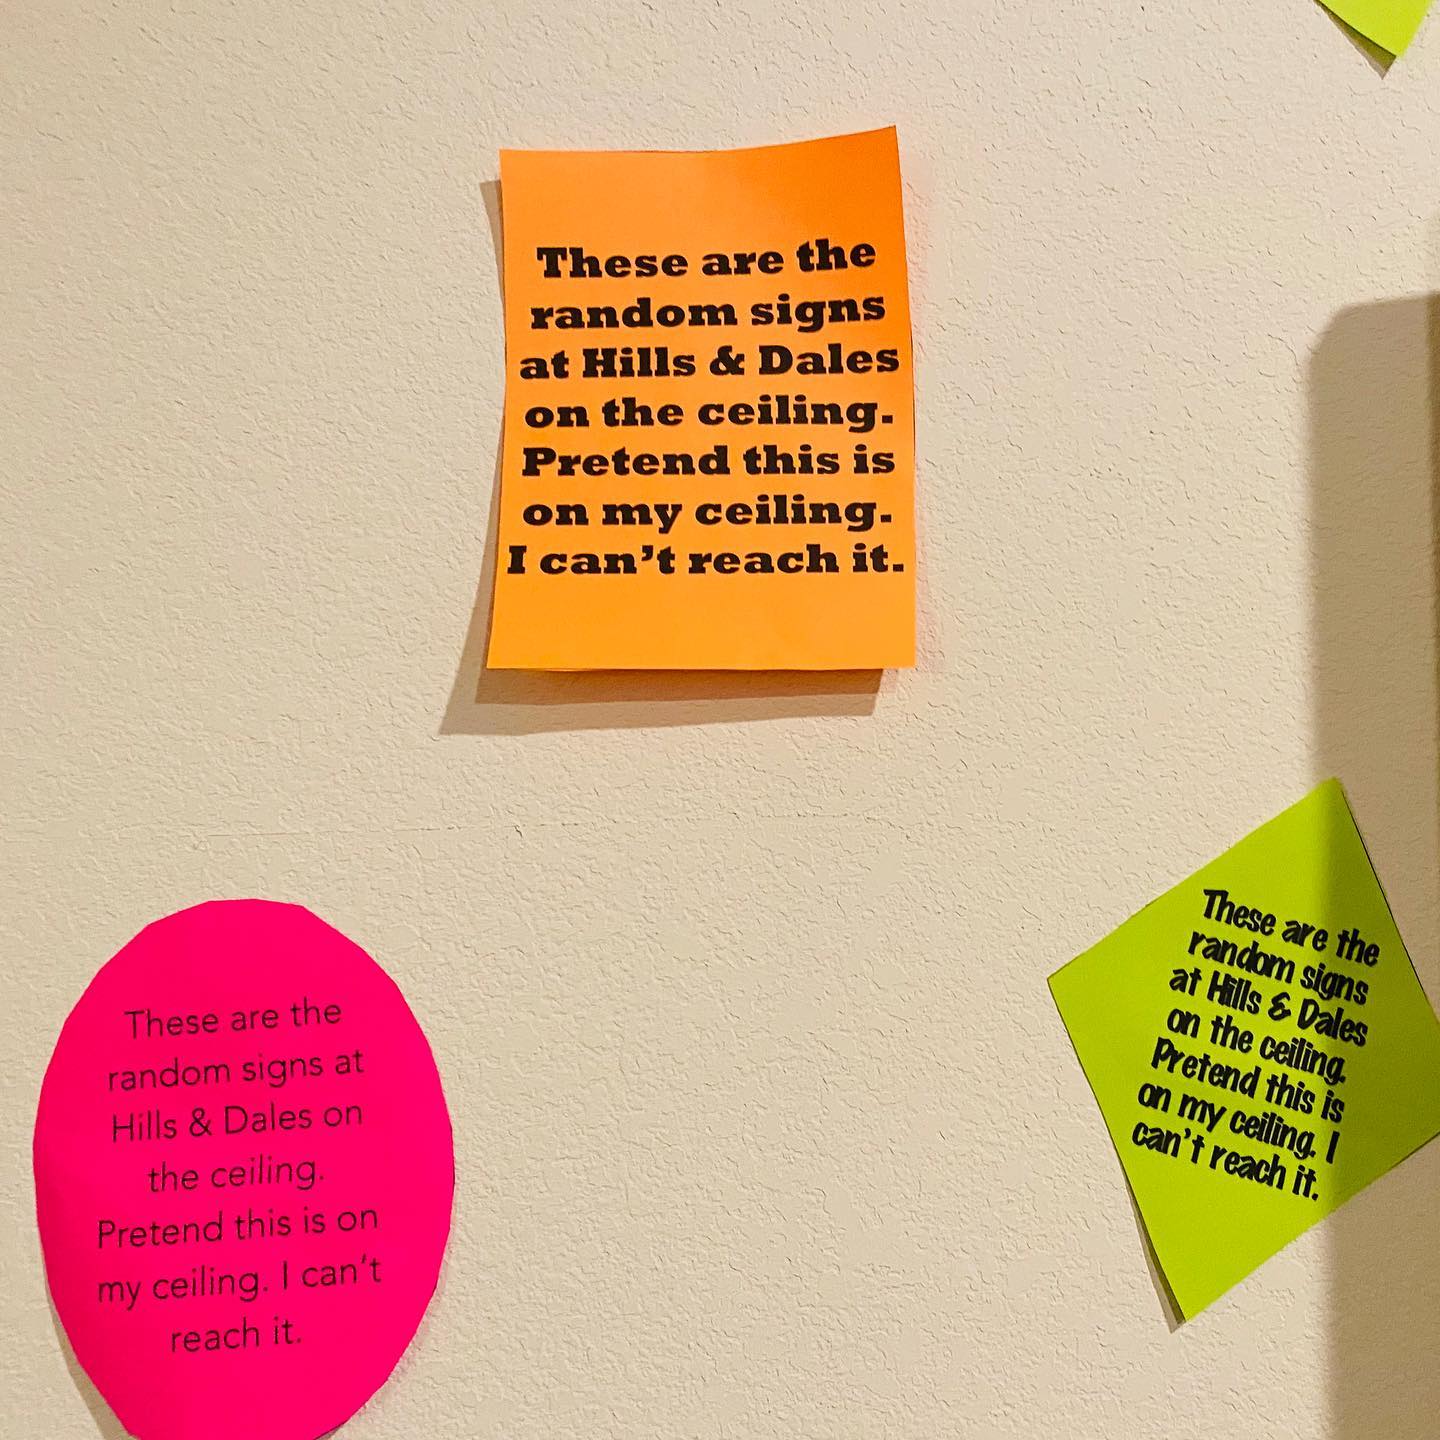 These are the
random signs
at Hills & Dales
on the ceiling.
Pretend this is
on my ceiling.
I can't reach it.
These are the
random signs at
Hills & Dales on
the ceiling.
Pretend this is on
my ceiling. I can't
reach it.
These are the
random signs
at Hills & Dales
on the ceiling.
Pretend this is
on my ceiling. I
can't reach it.